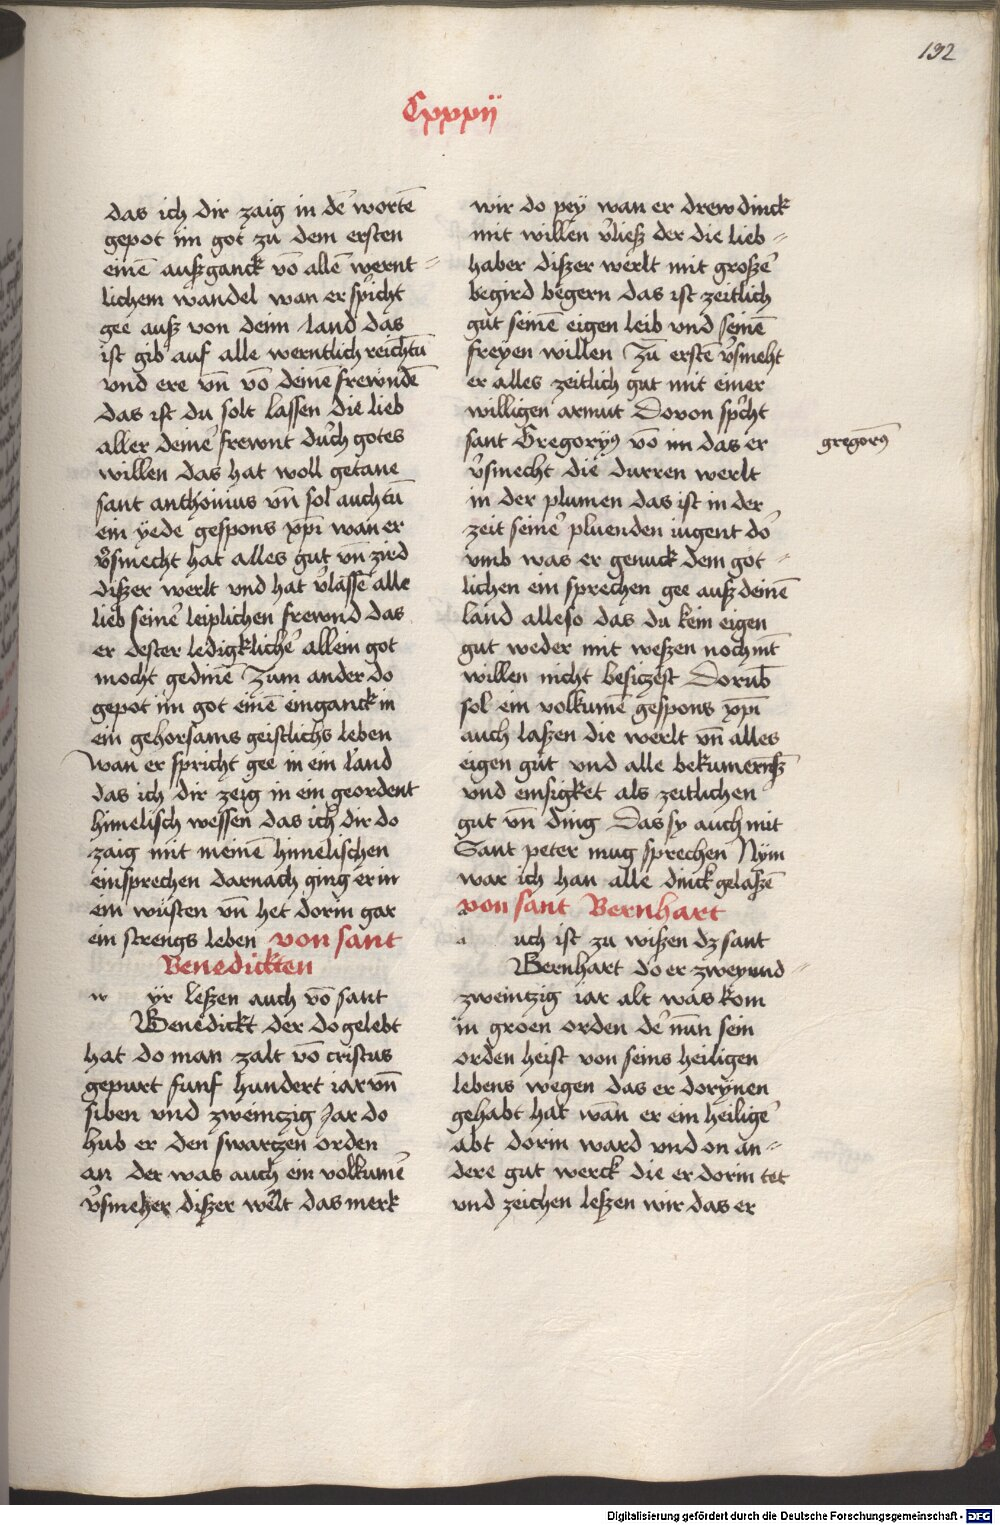 132
Cxxxij
das ich dir zaig in dē wortē
gepot im got zu dem ersten
einē auſzganck vō allē wernt⸗
lichem wandel wan er spͥcht
gee auſz von deim land das
ist gib auf alle werntlich reichtū
vnd ere vn̄ vō deinē frewndē
das ist du solt lassen die lieb
aller deineʼ frewnt durch gotes
willen das hat woll getane
sant anthonius vn̄ sol auch tū
ein yede gespons xp̄i wan er
vʼsmecht hat alles gut vn̄ zird
diſzer werlt vnd hat vʼlassē alle
lieb seineʼ leiplichen frewnd das
er dester ledigklicheʼ allein got
mocht gedinē Zum ander do
gepot im got einē einganck in
ein gehorsams geistlichs leben
wan er spricht gee in ein land
das ich dir zeig in ein geordent
himelisch wessen das ich dir do
zaig mit meinē himelischen
einsprechen darnach ging er in
ein wüsten vn̄ het dorin gar
ein strengs leben von sant
Benedickten
w yr leſzen auch vō sant
Benedickt der do gelebt
hat do man zalt vō cristus
gepurt funf hundert iar vn̄
siben vnd zweintzig Jar do
hub er den swartzen orden
an der was auch ein volkumē
vʼsmeher diſzer welt das merk
wir do pey wan er drew dinck
mit willen vʼlieſz der die lieb⸗
haber diſzer werlt mit groſzeʼ
begird begern das ist zeitlich
gut seinē eigen leib vnd seinē
freyen willen Zū erstē vʼsmeht
er alles zeitlich gut mit einer
willigen armut Dovon spͥcht
sant Gregoryꝰ vō im das er
vʼsmecht die durren werlt
in der plumen das ist in der
zeit seineʼ pluenden iugent do
vmb was er genuck dem got⸗
lichen ein sprechen gee auſz deinē
land alleso das du kein eigen
gut weder mit weſzen noch mit
willen nicht besiczest Dorub̄
sol ein volkumē gespons xp̄i
auch laſzen die werlt vn̄ alles
eigen gut vnd alle bekumernuſz
vnd emsigket als zeitlichen
gut vn̄ ding Das sy auch mit
Sant peter mug sprechen Nym
war ich han alle dinck gelaſzē
von sant Bernhart
a uch ist zu wiſzen dz sant
Bernhart do er zwey vnd⸗
zweintzig iar alt was kom
in groen orden deʼ nūn sein
orden heist von seins heiligen
lebens wegen das er dorynen
gehabt hat wan er ein heiligeʼ
abt dorin ward vnd on an⸗
dere gut werck die er dorin tet
vnd zeichen leſzen wir das er
gregoriꝰ
Digitalisierung gefördert durch die Deutsche Forschungsgemeinschaft - DFG